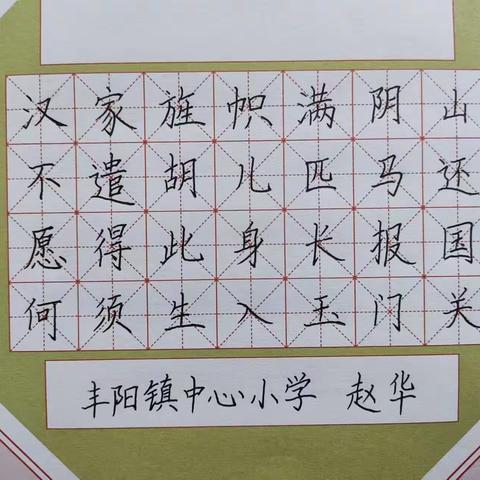 汉家旌帜满阴山
不遣胡儿匹马还
愿得此身长报国
何须生入玉门关
丰阳镇中心小学 赵华